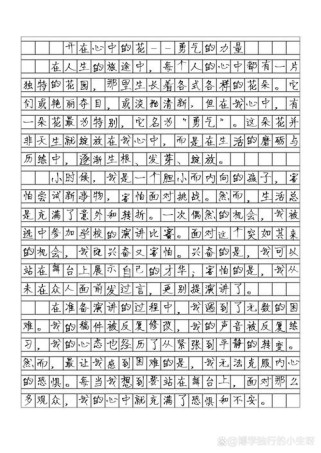 开在心中的花--勇气的力量
在人生的旅途中，每个人的心中都有一片
独特的花园，那里生长着各式各样的花朵。它
们或艳丽夺目，或淡雅清新。但在我心中，有
一朵花最为特别，它名为“勇气”。这朵花并
非天生就绽放在我心中，而是在生活的磨砺与
历练中，逐渐生根、发芽、绽放。
小时候，我是一个胆小而内向的孩子，害
怕尝试新事物，害怕面对挑战。然而，生活总
是充满了意外和转折。一次偶然的机会，我被
选中参加学校的演讲比赛。面对这个突如其来
的机会，我既兴奋又害怕。兴奋的是，我可以
站在舞台上展示自己的才华；害怕的是，我从
未在众人面前发过言，更别提演讲了。
在准备演讲的过程中，我遇到了无数的困
难。我的稿件被反复修改，我的声音被反复练
习，我的心态也经历了从紧张到平静的转变。
然而，最让我感到困难的是，我无法克服内心
的恐惧。每当我想到要站在舞台上，面对那么
多观众，我的心中就充满了恐惧和不安。
@博学独行的小史郎